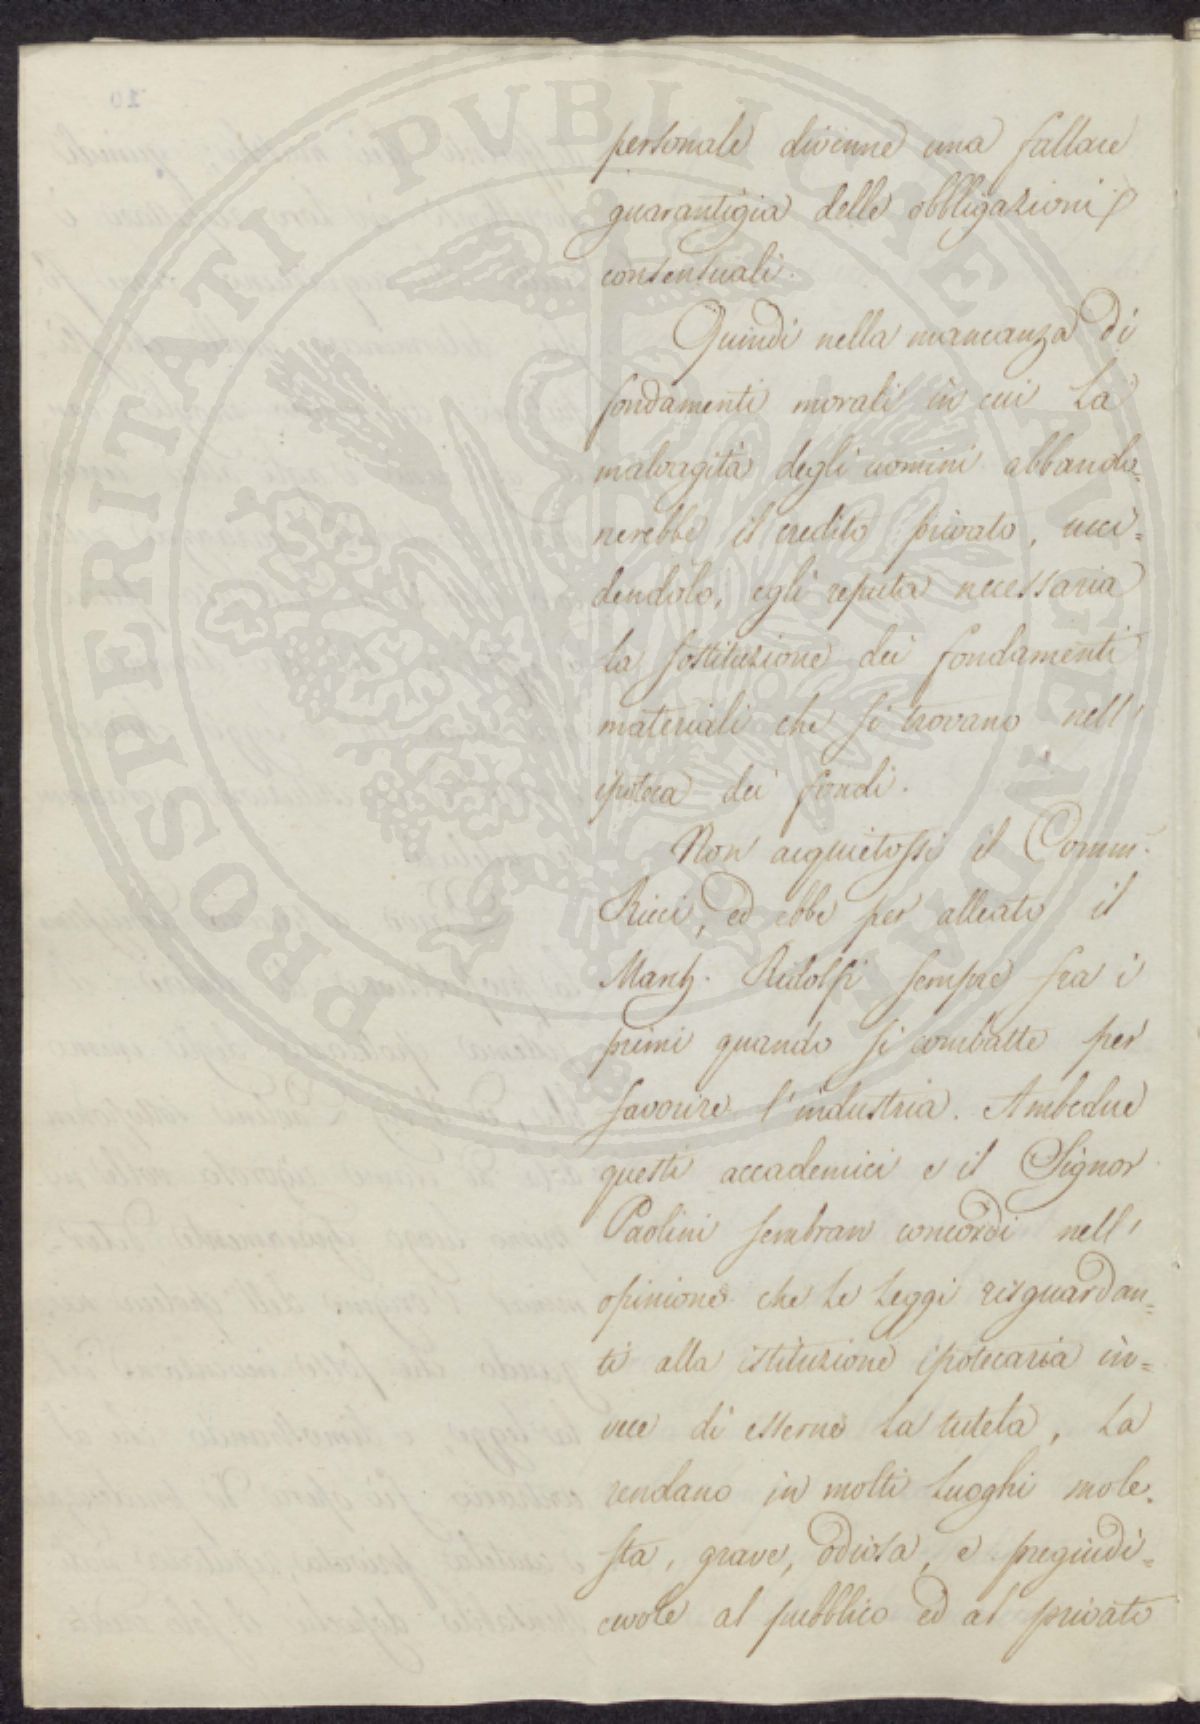 personale divenne una fallace
guarantigia delle obbligazioni
consensuali.
Quindi nella mancanza di
fondamenti morali in cui la
malvagità degli uomini abbando=
nerebbe il credito privato, ucci=
dendolo, egli reputa necessaria
la sostituzione dei fondamenti
materiali che si trovano nell'
ipoteca dei fondi.
Non acquietossi il Comm.
Ricci, ed ebbe per alleato il
March. Ridolfi sempre fra i
primi quando si combatte per
favorire l'industria. Ambedue
questi accademici e il Signor
Paolini sembran concordi nell'
opinione che le leggi risguardan=
ti alla istituzione ipotecaria in=
vece di esserne la tutela, la
rendano in molti luoghi mole=
sta, grave, odiosa, e pregiudi=
cevole al pubblico ed al privato
PROSPERITATI PVBLICAE AVGENDAE